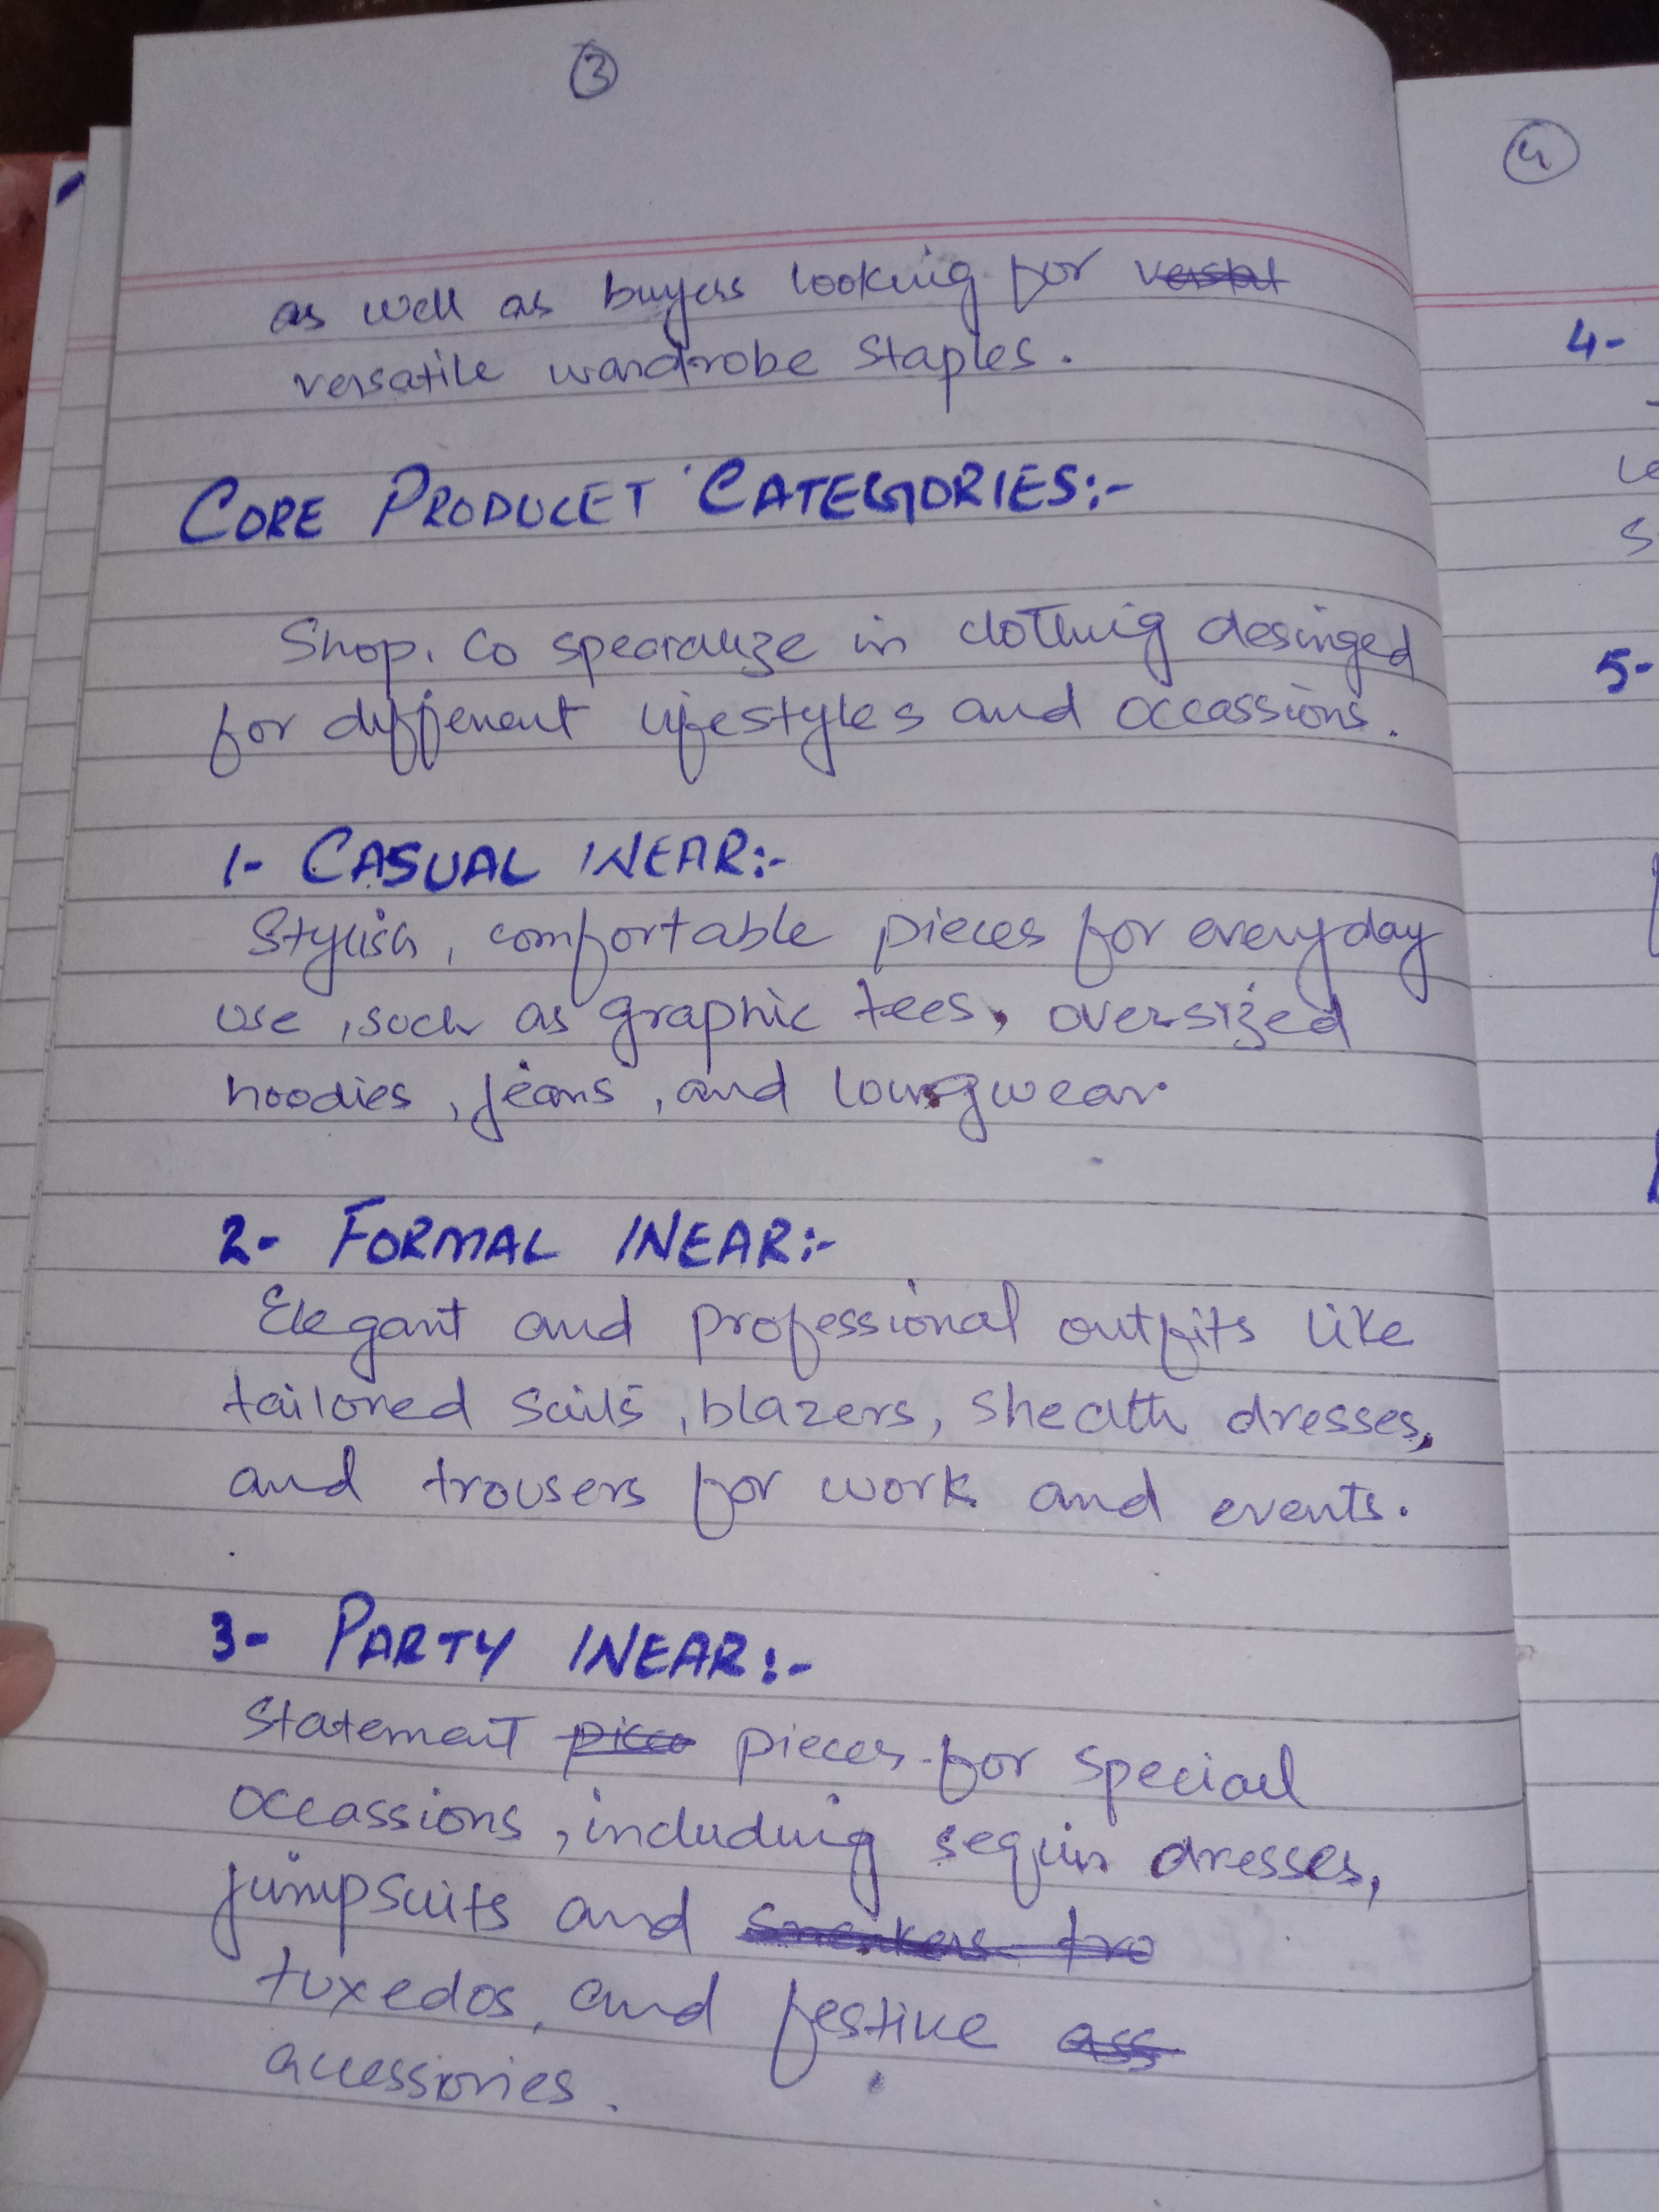 3
as well as buyers looking for versat
versatile wardrobe staples.
CORE PRODUCET CATEGORIES:-
Shop.Co spearalize in clothing desinged
for different lifestyles and occassions.
1- CASUAL WEAR:-
Stylish, comfortable pieces for everyday
use, such as graphic tees, oversized
hoodies, jeans, and loungwear.
2- FORMAL WEAR:-
Elegant and professional outfits like
tailored suits, blazers, sheath dresses,
and trousers for work and events.
3- PARTY WEAR:-
Statement picce pieces for special
occassions, including sequin dresses,
jumpsuits and sneakers tro
tuxedos, and festive ass
accessiories.
4
4-
5-